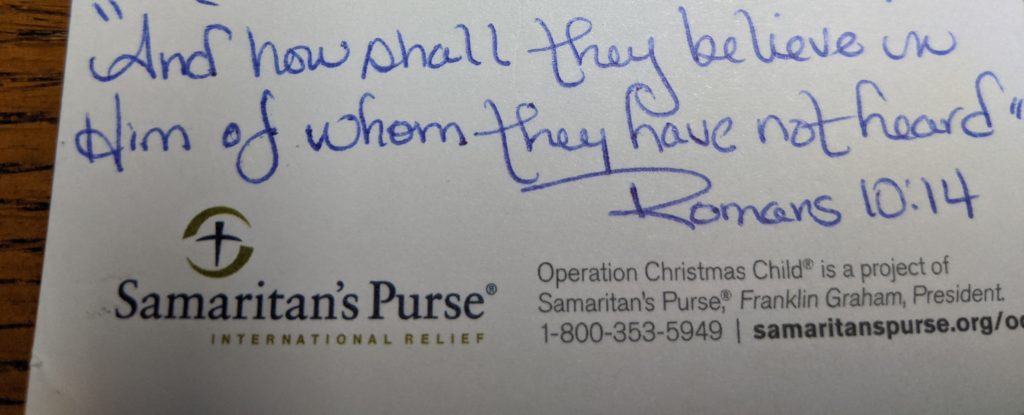 "And how shall they believe in
Him of whom they have not heard"
Romans 10:14
Samaritan's Purse®
INTERNATIONAL RELIEF
Operation Christmas Child® is a project of
Samaritan's Purse,® Franklin Graham, President.
1-800-353-5949 | samaritanspurse.org/oc